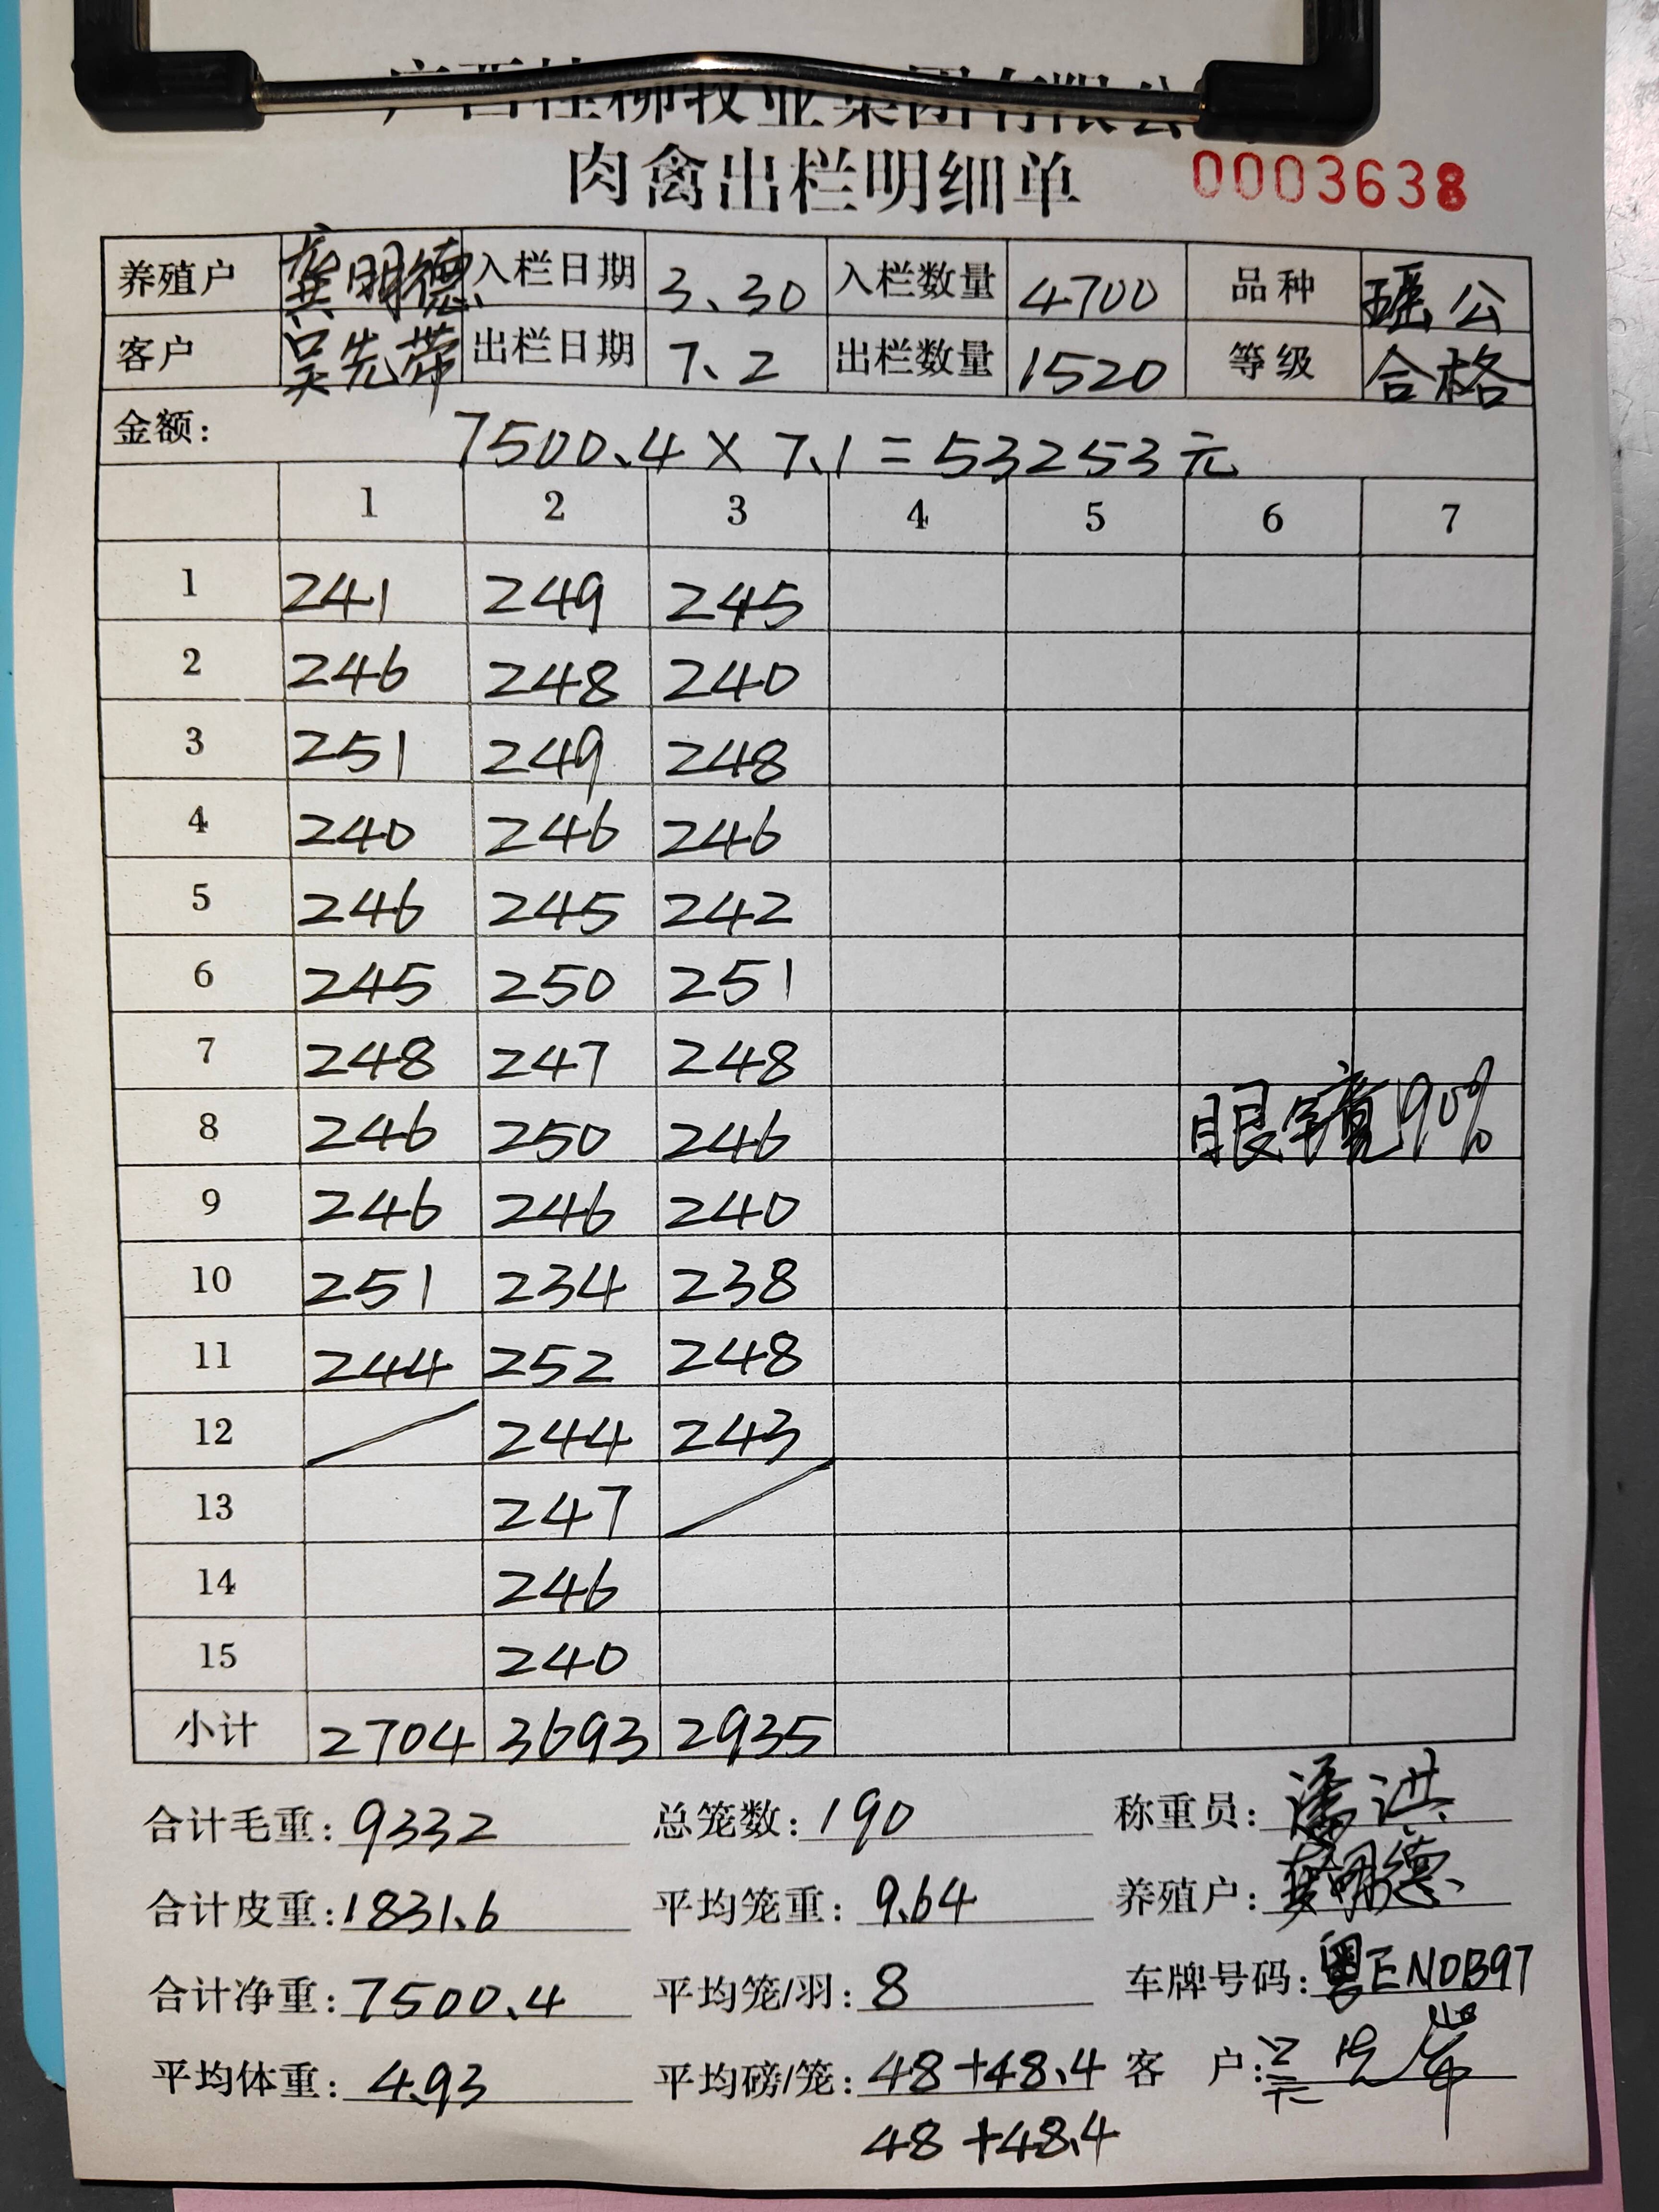 广西桂柳牧业集团有限公
肉禽出栏明细单 0003638
养殖户 龚明德 入栏日期 3.30 入栏数量 4700 品种 瑶公
客户 吴先带 出栏日期 7.2 出栏数量 1520 等级 合格
金额: 7500.4×7.1=53253元
1 2 3 4 5 6 7
1 241 249 245
2 246 248 240
3 251 249 248
4 240 246 246
5 246 245 242
6 245 250 251
7 248 247 248
8 246 250 246 眼 90%
9 246 246 240
10 251 234 238
11 244 252 248
12 244 243
13 247
14 246
15 240
小计 2704 3693 2935
合计毛重: 9332 总笼数: 190 称重员: 潘洪
合计皮重: 1831.6 平均笼重: 9.64 养殖户: 龚明德
合计净重: 7500.4 平均笼/羽: 8 车牌号码: 粤EN0B97
平均体重: 4.93 平均磅/笼: 48+48.4 客 户:
48+48.4